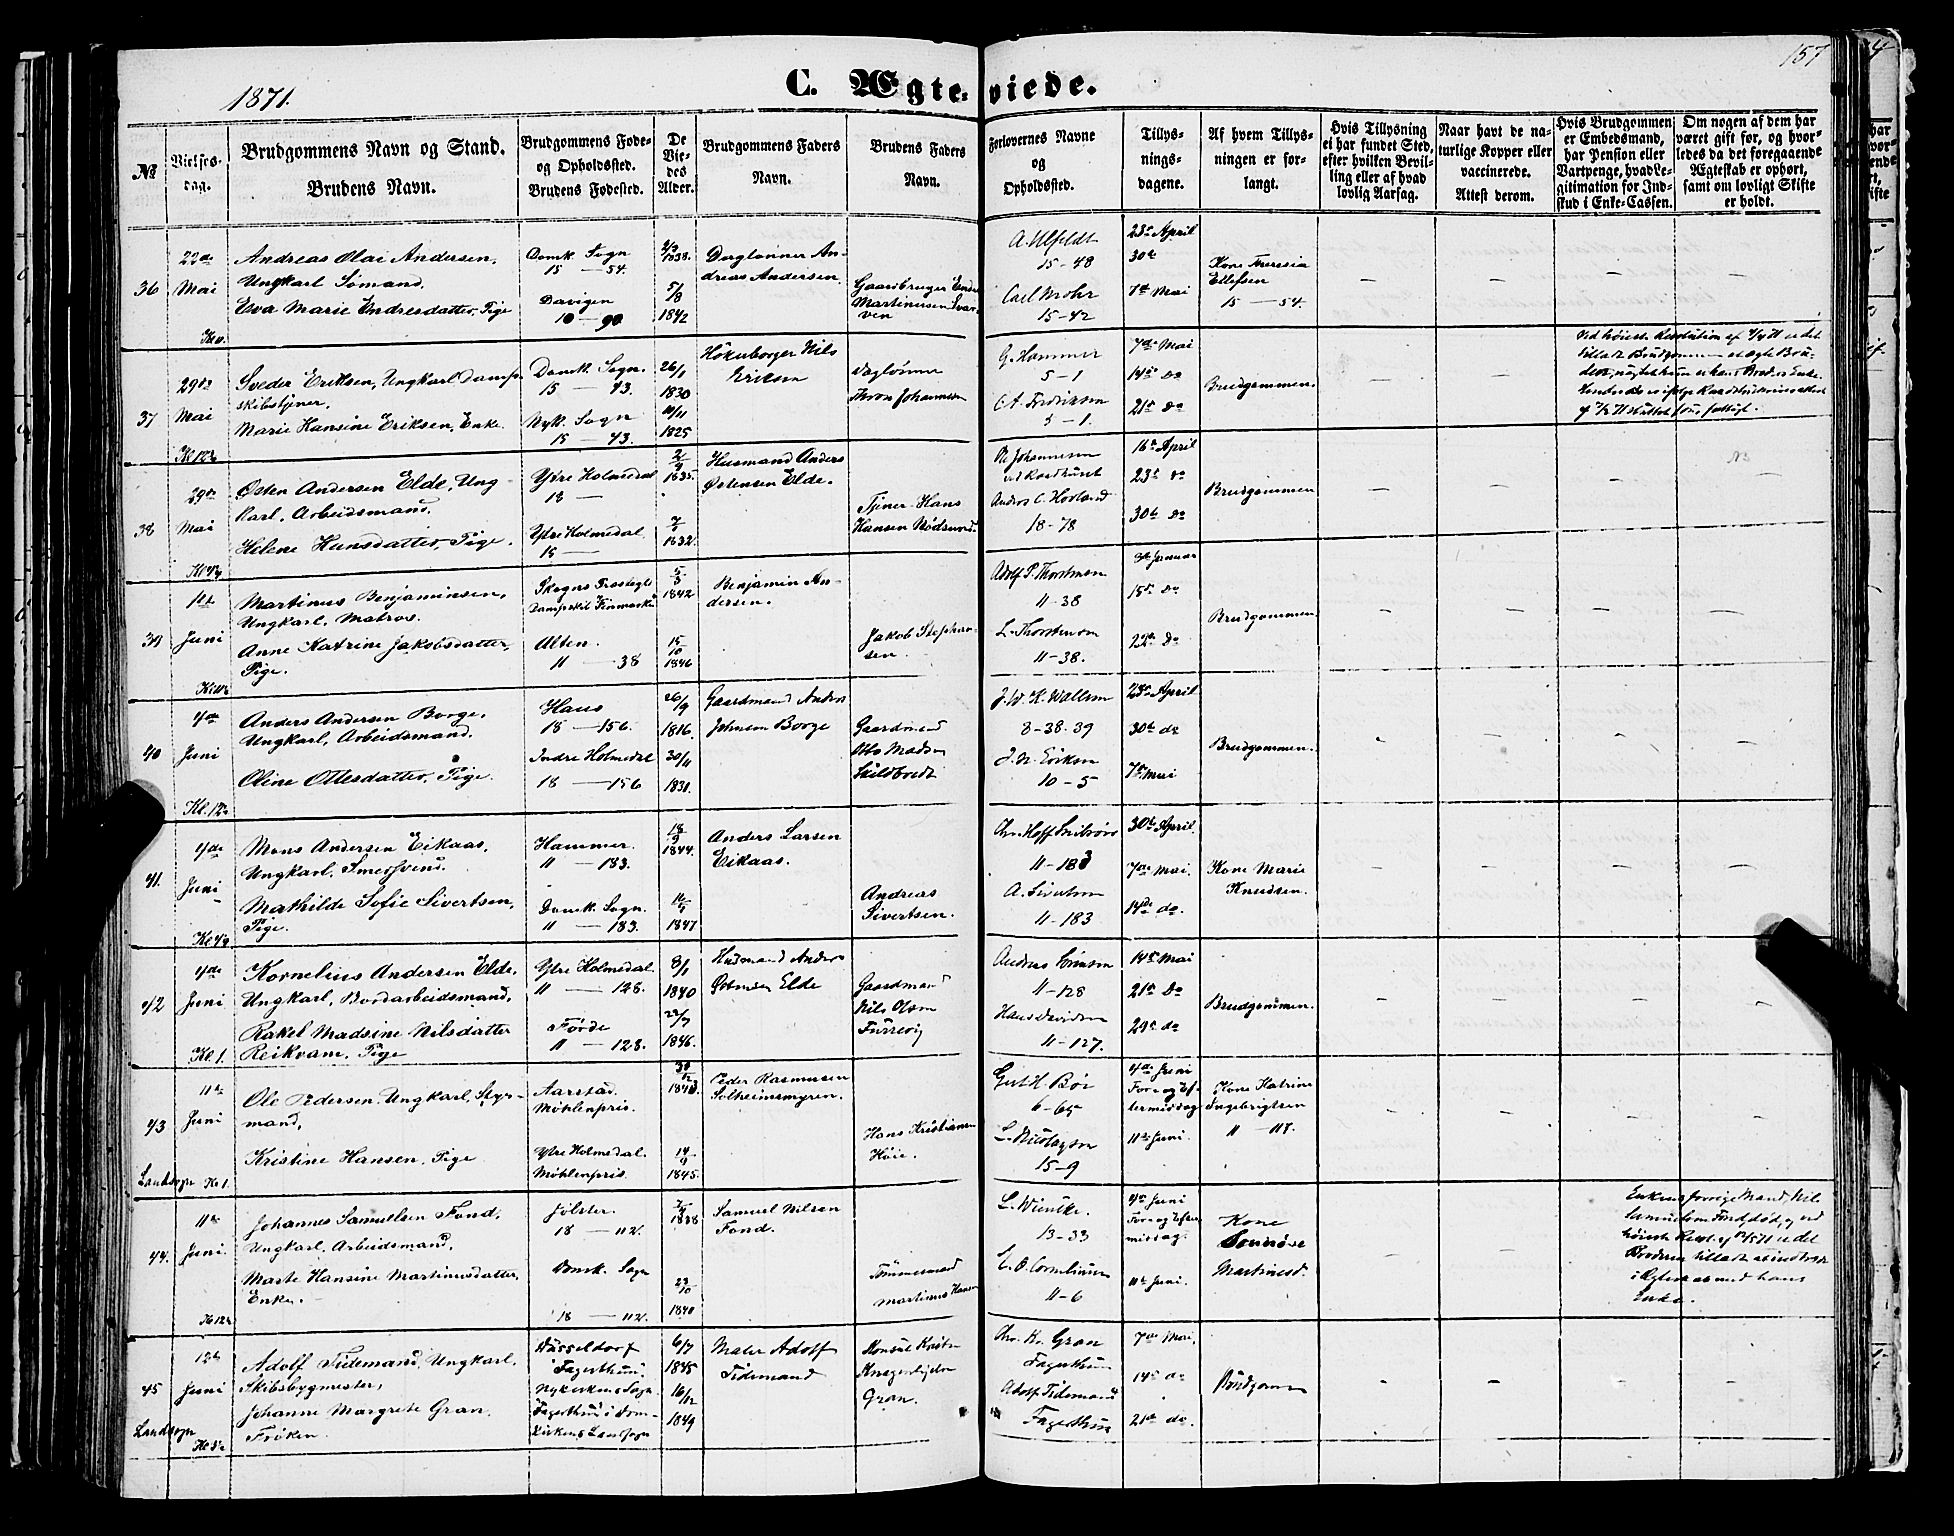 157
1871.
C. Ægteviede.
No
Vielses-
dag.
Brudgommens Navn og Stand.
Brudens Navn.
Brudgommens Føde-
og Opholdssted.
Brudens Fødested.
De
Vie-
des
Alder.
Brudgommens Faders
Navn.
Brudens Faders
Navn.
Forlovernes Navne
og
Opholdssted.
Tillys-
nings-
dagene.
Af hvem Tillys-
ningen er for-
langt.
Hvis Tillysning
ei har fundet Sted,
efter hvilken Bevil-
ling eller af hvad
lovlig Aarsag.
Naar havt de na-
turlige Kopper eller
vaccinerede.
Attest derom.
Hvis Brudgommen
er Embedsmand,
har Pension eller
Vartpenge, hvad Le-
gitimation for Ind-
skud i Enke-Cassen.
Om nogen af dem har
været gift før, og hvor-
ledes da det foregaaende
Ægteskab er ophørt,
samt om lovligt Skifte
er holdt.
36
22de
Mai
Andreas Olai Andersen,
Ungkarl Sømand.
Eva Marie Endresdatter, Pige
Domk. Sogn
15 — 54.
Davigen
10 — 90
1838.
5/8
1842
Daglønner An-
dreas Andersen
Gaardbruger
Martinussen
A. Ulfeldt
15-48
Carl Mohr
15-42
23de April
30te
7de Mai
Kone Theresia
Ellefsen
15 — 54.
37
29de
Mai
Kl 12
Sveder Eriksen, Ungkarl Damp-
skibstjener.
Marie Hansine Eriksen, Enke
Domk. Sogn.
15 — 43.
Nyk. Sogn
15 — 43.
26/1
1830
1825
Høkerborger Nils
Eriksen
Daglønner
Thron Johannesen
G. Hammer
5-1
C. A. Fredriksen
5-1.
7de Mai
14de do
21de do
Brudgommen.
38
29de
Mai
Østen Andersen Elde, Ung-
karl, Arbeidsmand.
Helene Hansdatter, Pige.
Ytre Holmedal
18 —
Ytre Holmedal
15 —
1835.
1832
Husmand Anders
Østensen Elde.
Tjener Hans
Hansen
Johannesen
ved Raadhuset
Anders C. Hovland
18-78
16de April
23de do
30te do
Brudgommen
39
1ste
Juni
Martinus Benjaminsen,
Ungkarl, Matros.
Anne Katrine Jakobsdatter,
Pige.
Skogns Præstegld
Dampskib Finmarken
Alten.
11 — 38
5/3
1842
15/10
1846
Benjamin An-
dersen.
Jakob Stephan-
sen.
Adolf P. Thorstensen
11-38
L. Thorstensen
11-38.
Januar
15de do
22de do
Brudgommen
40
4de
Juni
Kl. 12
Anders Andersen Borge,
Ungkarl, Arbeidsmand.
Oline Ottersdatter, Pige.
Haus
18 — 156.
Indre Holmedal
18 — 156
26/9
1816.
30/11
1831.
Gaardmand Anders
Johnsen Borge
Gaardmand
Madsen
J. W. K. Wallem
8-38.39
J. N. Eriksen
10-5
23de April
30te do
7de Mai
Brudgommen.
41.
4de
Juni
Mons Andersen Eikaas,
Ungkarl, Smedsvend.
Mathilde Sofie Sivertsen,
Pige.
Hammer.
11 — 183.
Domk. Sogn.
11 — 183.
18/9
1844.
1847
Anders Larsen
Eikaas.
Andreas
Sivertsen.
11-183
A. Sivertsen
11-183
30te April.
7de Mai.
14de do.
Kone Marie
Knudsen.
42
4de
Juni
Kl 1.
Kornelius Andersen Elde,
Ungkarl, Bordarbeidsmand,
Rakel Madsine Nilsdatter
Reikvam, Pige
Ytre Holmedal.
11 — 128.
Førde
11 — 128.
8/1
1840
1846.
Husmand Anders
Østensen Elde
Gaardmand
Nils Olsen
Andreas
11-128
Hans Davidsen
11-127.
14de Mai
21de do
29de do
Brudgommen.
43
11te
Juni
Landsogn Kl 1.
Ole Pedersen, Ungkarl, Styr-
mand,
Kristine Hansen, Pige
Aarstad.
Møhlenpris.
Ytre Holmedal.
Møhlenpris.
14/9
1845.
Peder Rasmussen
Solheimsmyren.
Hans Kristiansen
Høie.
Gert H. Bøe
L. Nicolaysen
15-9
4de Juni
For- og Ef-
termiddag
11te Juni.
Kone Katrine
Ingebrigtsen
11 — 118.
44.
11te
Juni.
Kl 12
Johannes Samuelsen Fond,
Ungkarl, Arbeidsmand,
Marte Hansine Martinusdatter,
Enke.
Jølster.
18 — 112.
Domk. Sogn
18 — 112.
1838
23/10
1840
Samuel Nilsen
Fond.
Tømmermand
Martinus Hansen
L. Wiencke.
13-33
C. O. Cornelius
11-6
4de Juni
For- og Efter-
middag.
11te Juni.
Kone
Martinesd.
Enkens forrige Mand, Nils
Samuelsen Fond, død, og ved
i Ægteskab med hans
Enke.
45
12te
Juni
Landsogn
Adolf Tidemand, Ungkarl,
Skibsbygmester,
Johanne Margrete Gran,
Frøken
Düsseldorf
Fagerthun
Nykirkens Sogn
Fagerthun i Dom-
kirkens Landsogn
6/7
1845
16/12
1849
Maler Adolf
Tidemand
Konsul Kristen
Knagenhjelm
Gran.
Chr. K. Gran
Fagerthun
Adolf Tidemand
Fagerthun
7de Mai.
14de do
21de do.
Brudgommen